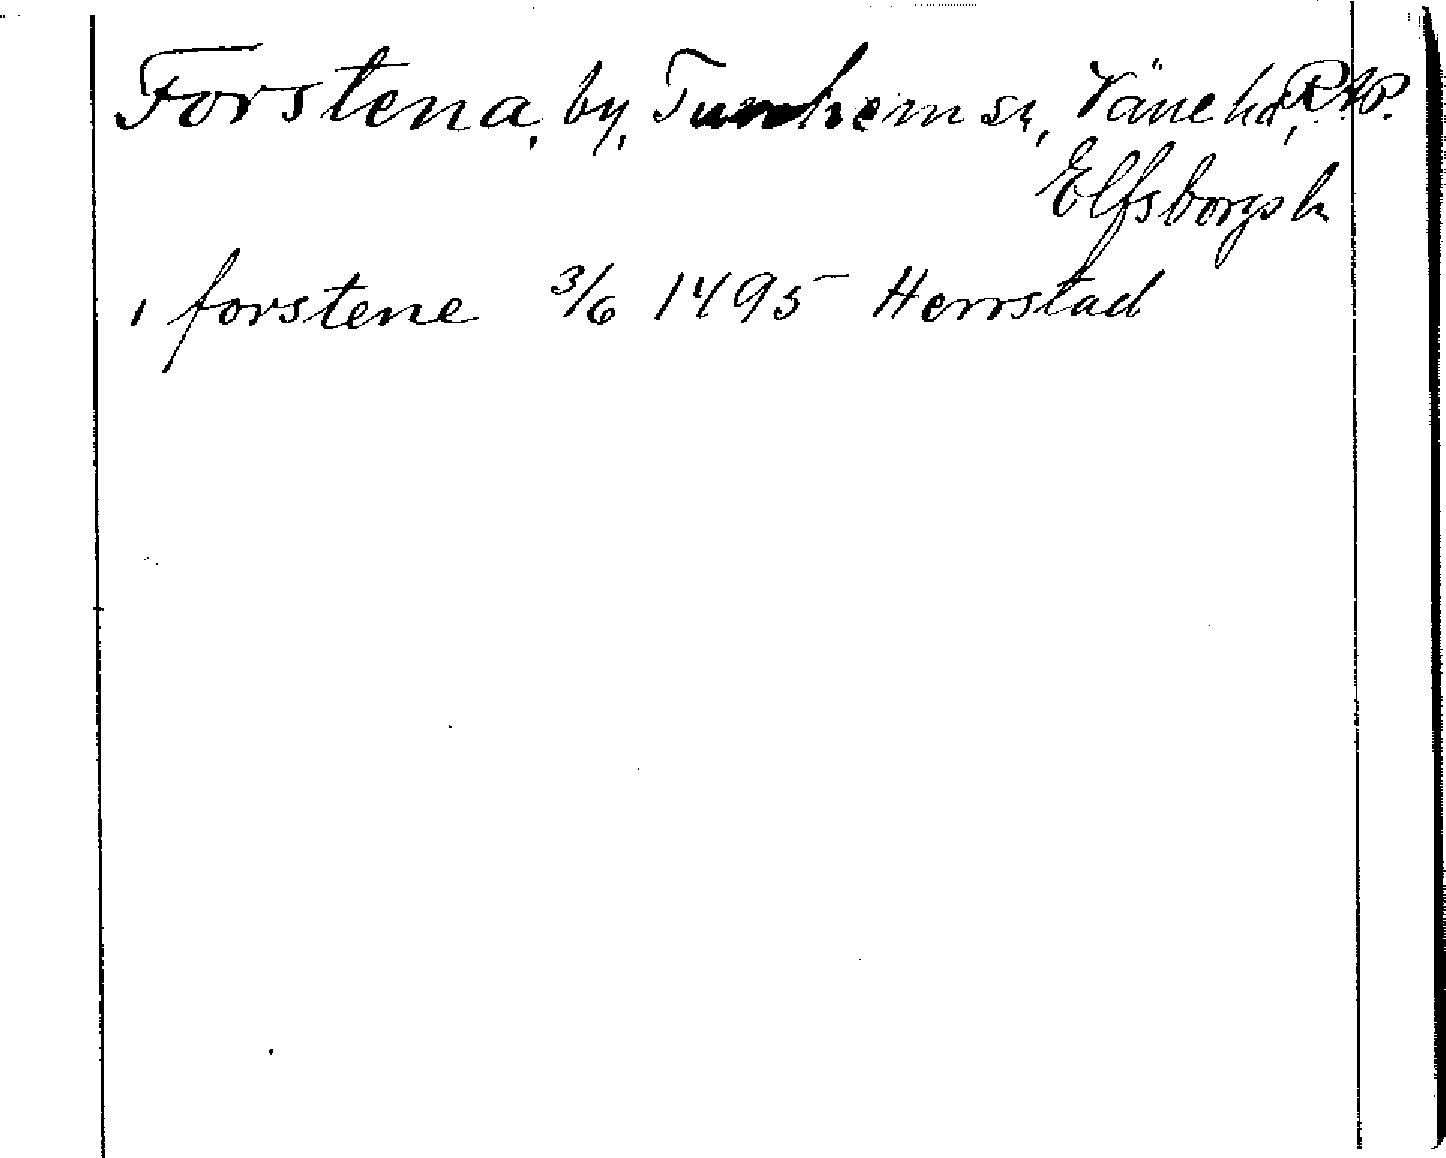 Forstena, by, Tunhem sn, Väne hd, RAP.
Elfsborgs l.
i forstene 3/6 1495 Herrstad